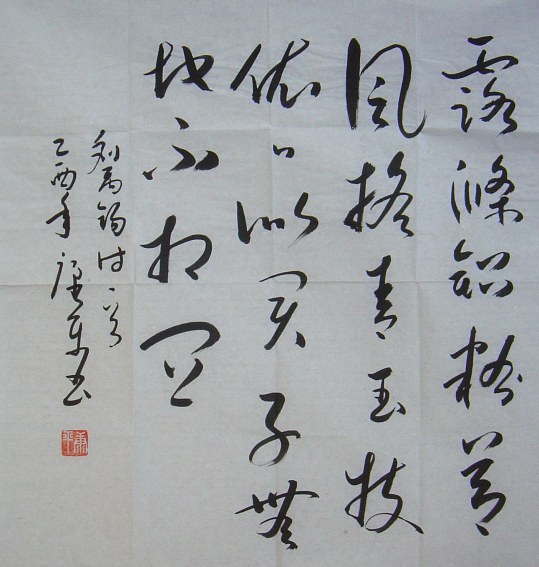 露滌鉛粉節
風搖青玉枝
依〻似君子無
地不相宜
劉禹錫詩一首
乙酉年康平书
康平